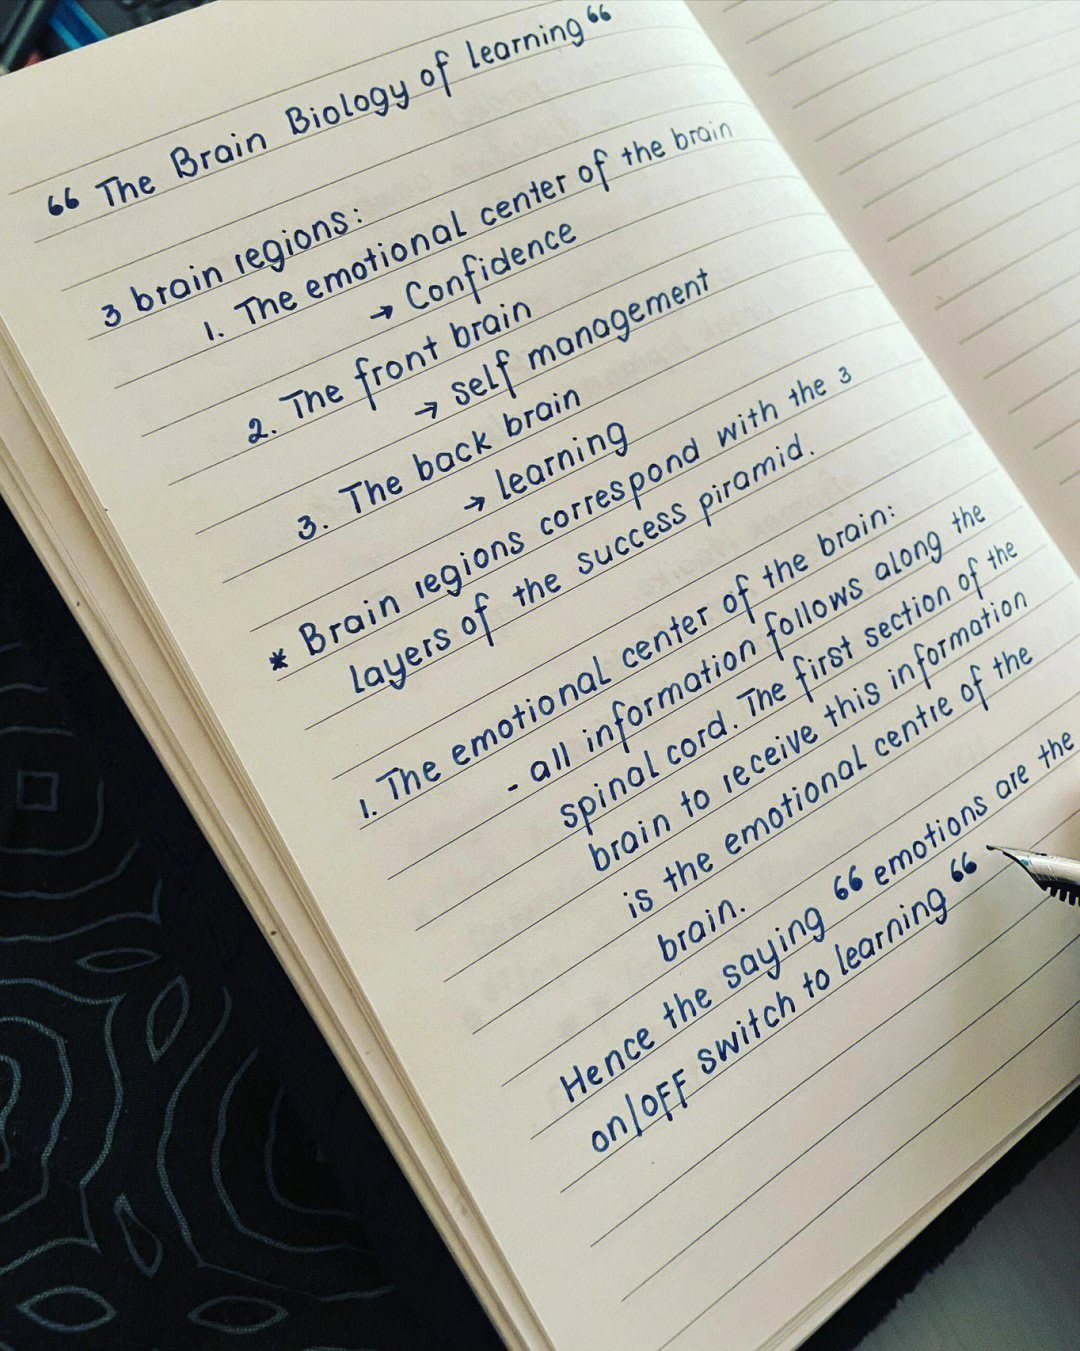 “ The Brain Biology of learning “
3 brain regions:
1. The emotional center of the brain
→ Confidence
2. The front brain
→ self management
3. The back brain
→ learning
* Brain regions correspond with the 3
layers of the success piramid.
1. The emotional center of the brain:
- all information follows along the
spinal cord. The first section of the
brain to receive this information
is the emotional centre of the
brain.
Hence the saying “ emotions are the
on/off switch to learning “